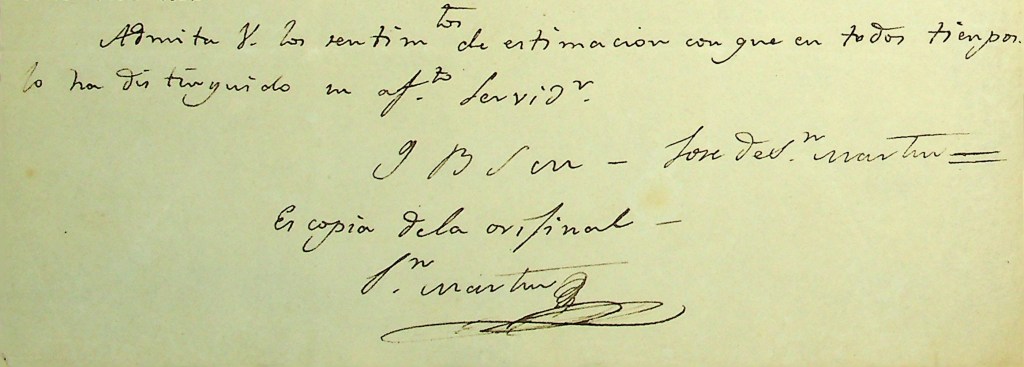 Admita V. los sentim.tos de estimacion con que en todos tienpos
lo ha distinguido su af.to Servid.r
Q B S M – Jose de S.n Martin
Es copia dela original –
S.n Martin